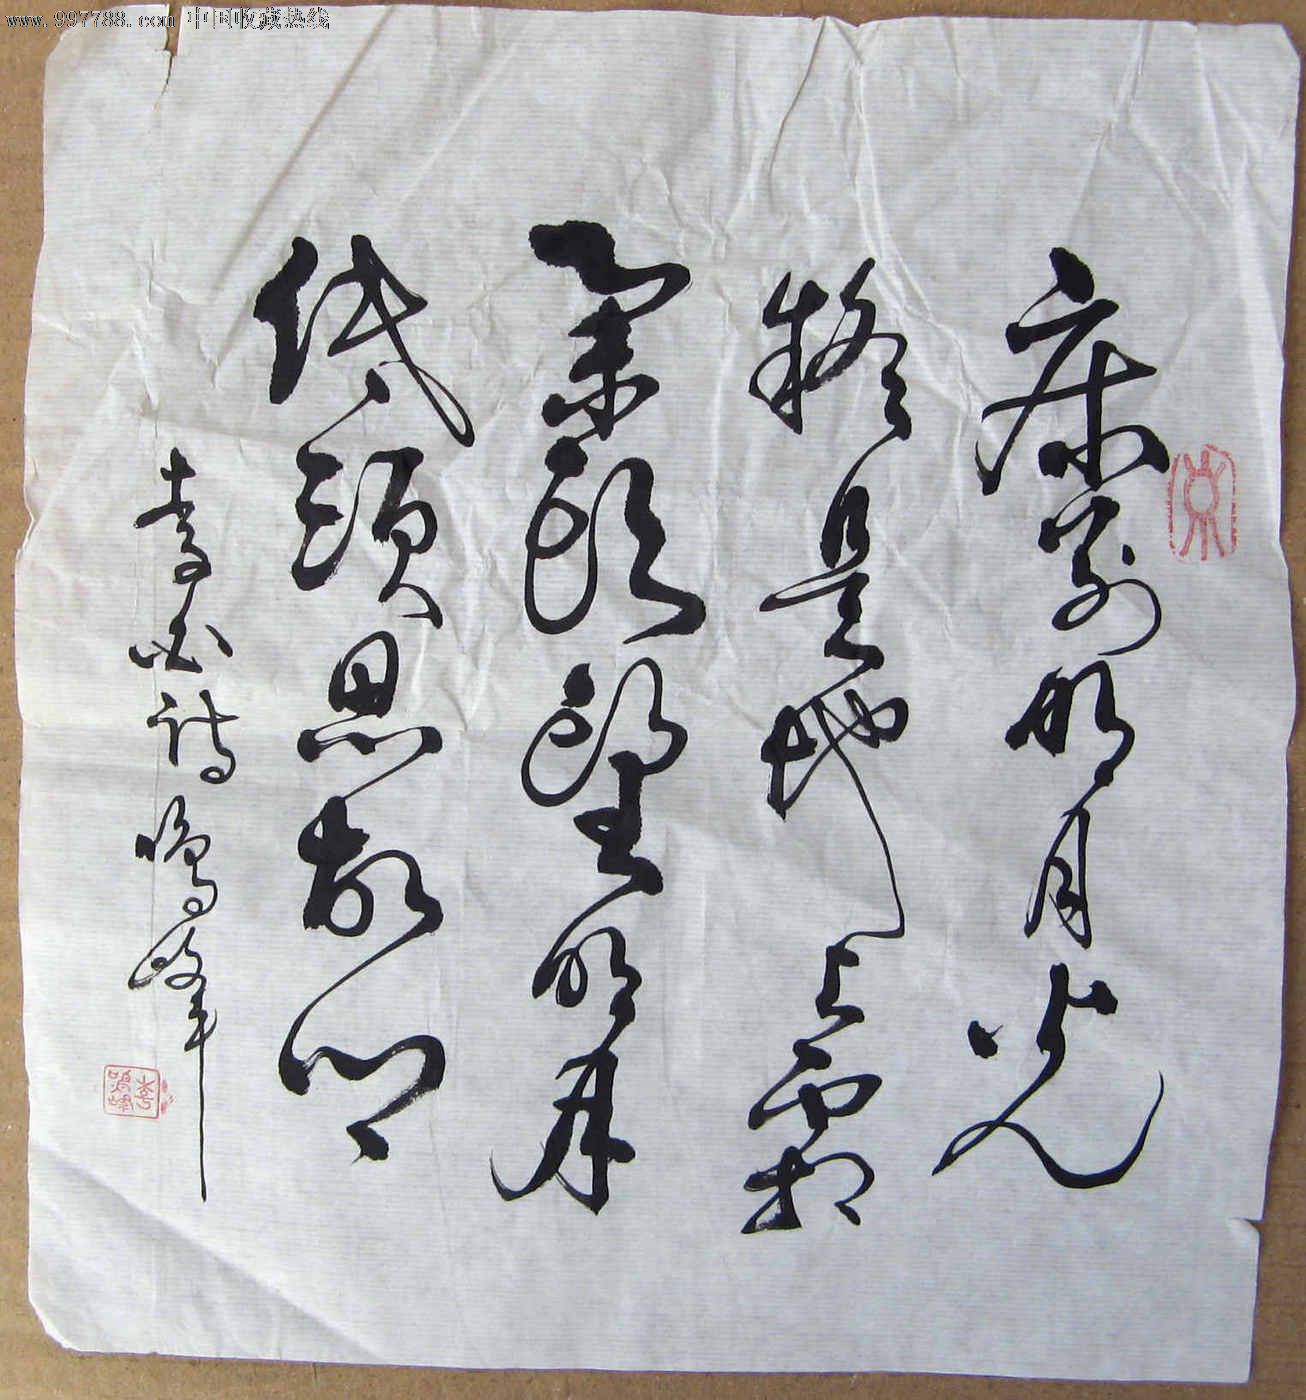 www.997788.com 中国收藏热线
床前明月光
疑是地上霜
举头望明月
低头思故乡
李白诗 鸣峰书
李鸣峰